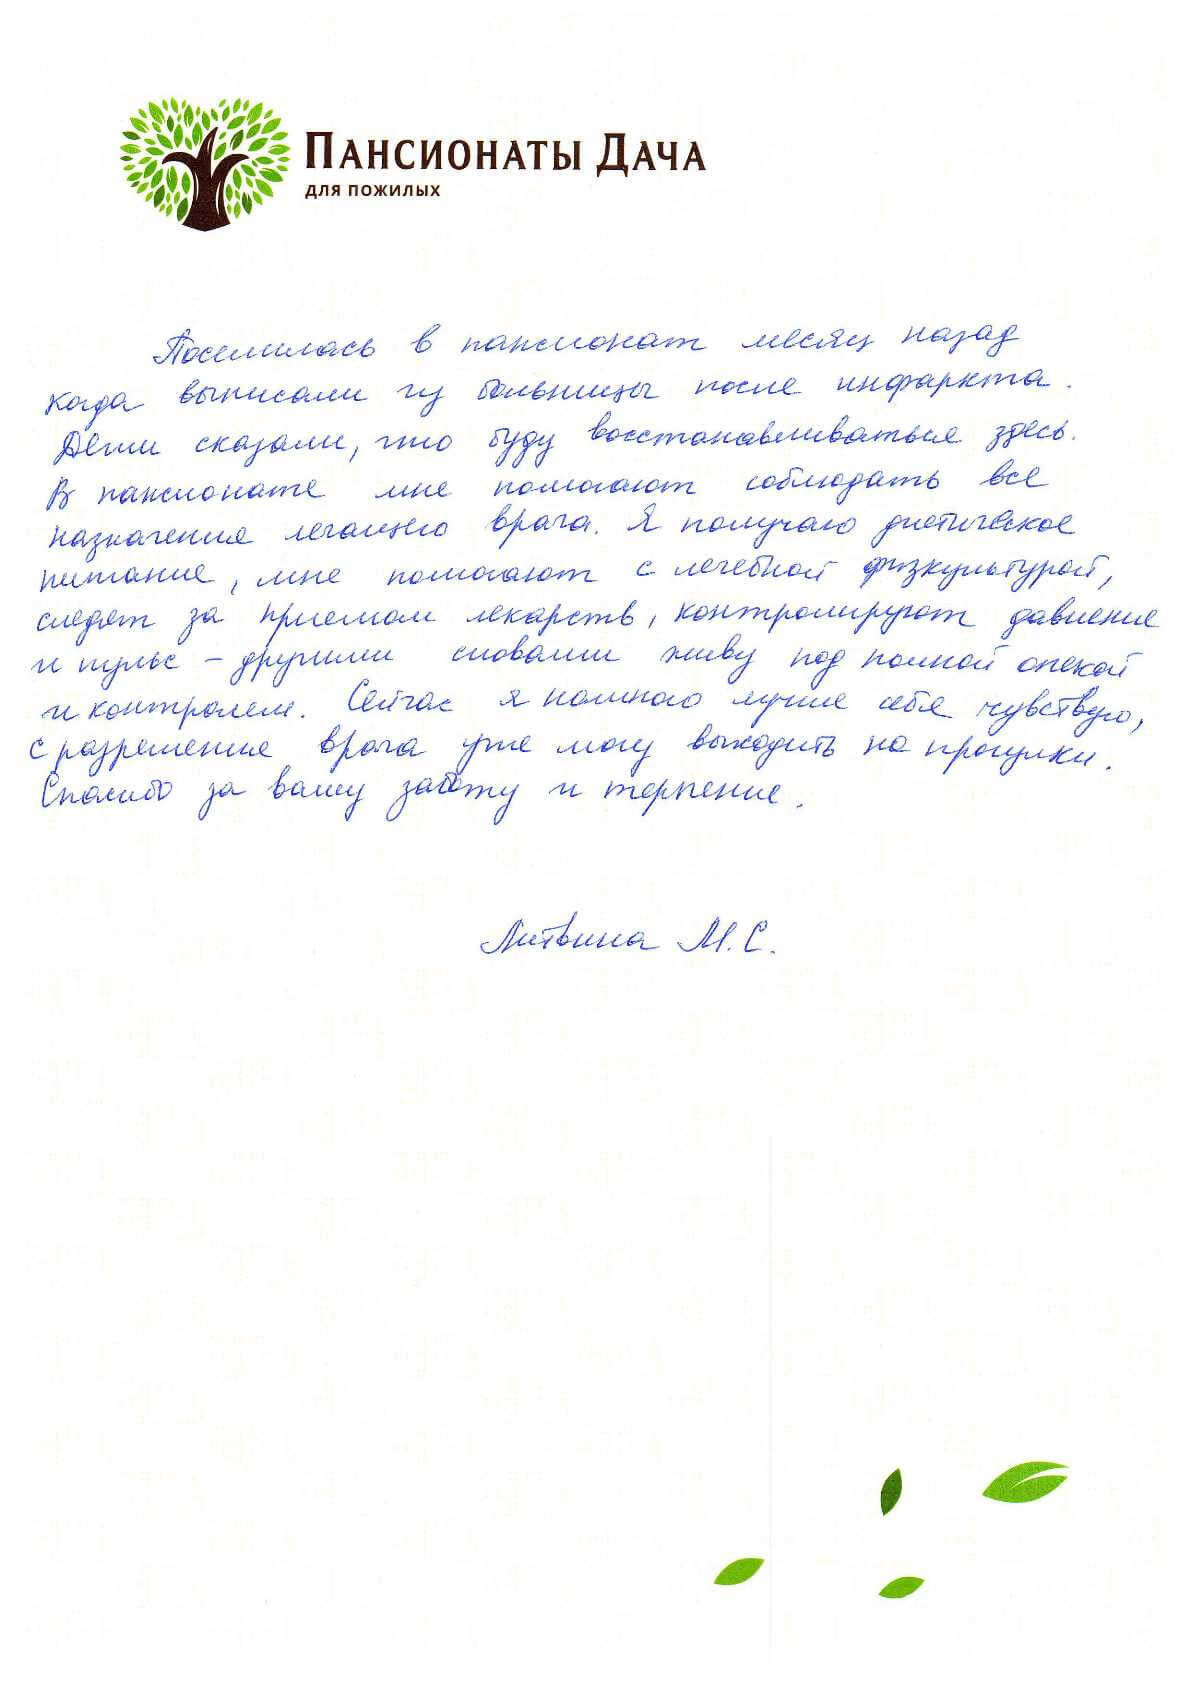 ПАНСИОНАТЫ ДАЧА
ДЛЯ ПОЖИЛЫХ
Поселилась в пансионат месяц назад
когда выписали из больницы после инфаркта.
Дети сказали, что буду восстанавливаться здесь.
В пансионате мне помогают соблюдать все
назначения лечащего врача. Я получаю диетическое
питание, мне помогают с лечебной физкультурой,
следят за приемом лекарств, контролируют давление
и пульс – другими словами живу под полной опекой
и контролем. Сейчас я намного лучше себя чувствую,
с разрешения врача уже могу выходить на прогулки.
Спасибо за вашу заботу и терпение.
Литвина М.С.